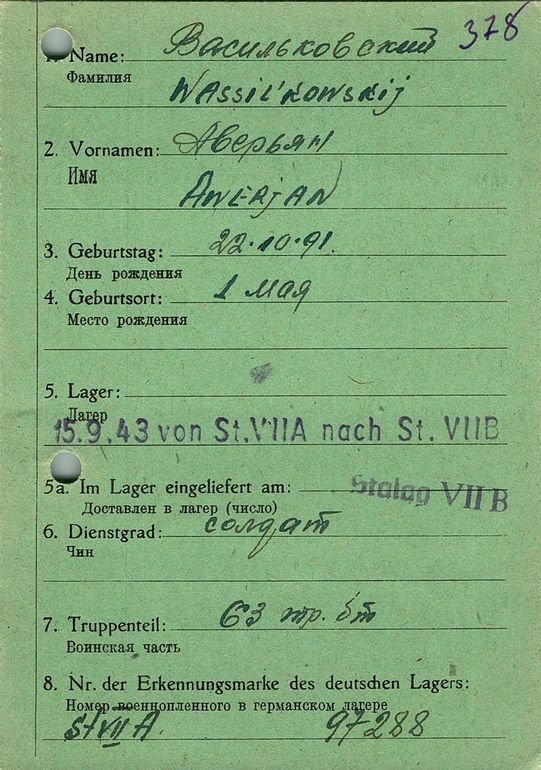 378
1. Name: Васильковский
Фамилия
WASSIL'KOWSKIJ
2. Vornamen: Аверьян
Имя
AWERJAN
3. Geburtstag: 22.10.91.
День рождения
4. Geburtsort: 1 мая
Место рождения
5. Lager:
Лагер
15.9.43 von St.VIIA nach St. VIIB
5a. Im Lager eingeliefert am: Stalag VII B
Доставлен в лагер (число)
6. Dienstgrad: солдат
Чин
7. Truppenteil: 63 тр. бт
Воинская часть
8. Nr. der Erkennungsmarke des deutschen Lagers:
Номер военнопленного в германском лагере
St VII A. 97288